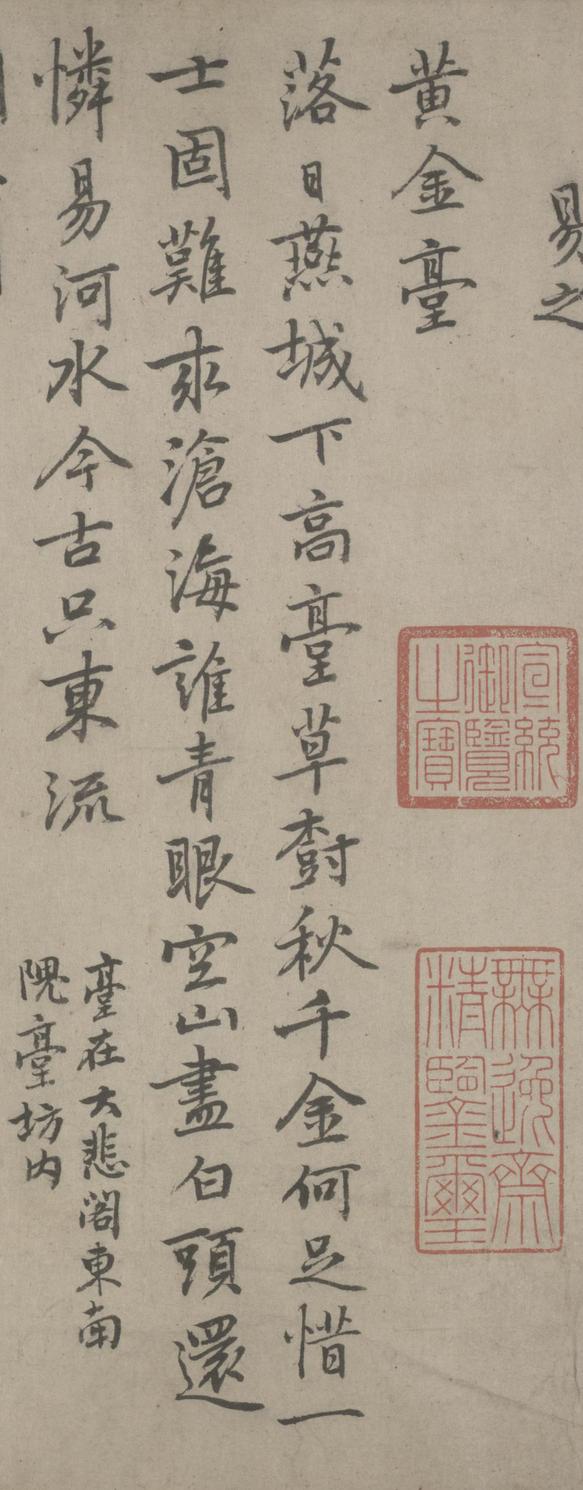 易之
黄金臺
落日燕城下高臺草樹秋千金何足惜一
士固難求滄海誰青眼空山盡白頭還
憐易河水今古只東流
臺在大悲閣東南
隗臺坊内
宣統
御覽
之寶
無逸齋
精鑒璽